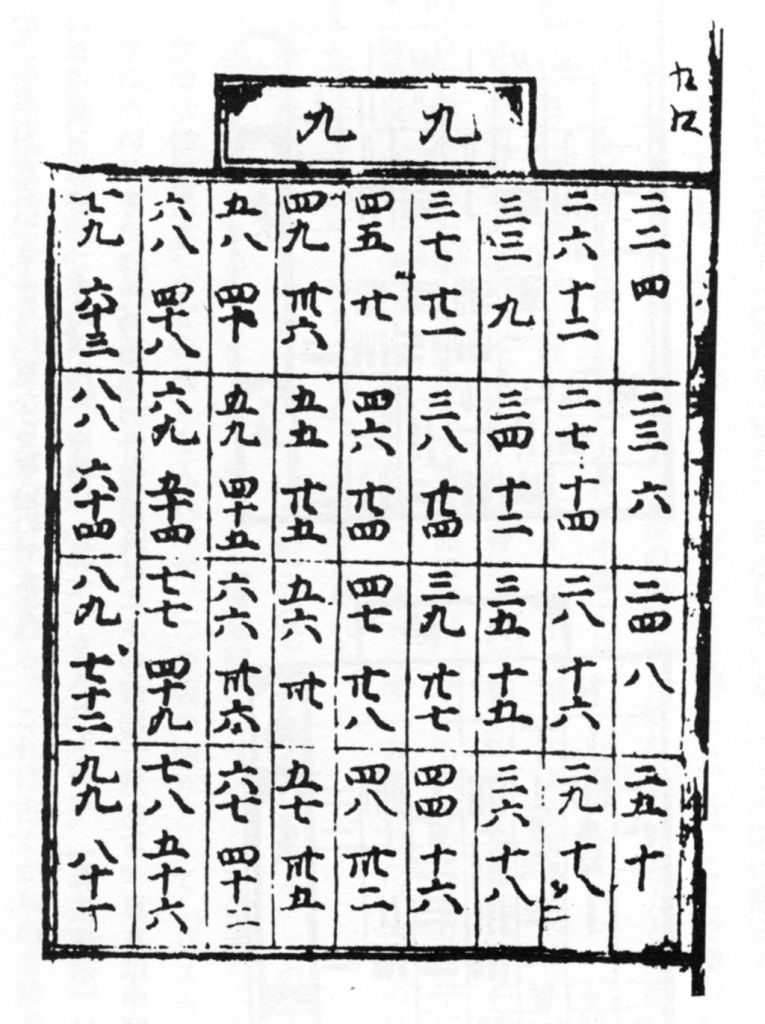 九九
二二 四 二三 六 二四 八 二五 十
二六 十二 二七 十四 二八 十六 二九 十八
三三 九 三四 十二 三五 十五 三六 十八
三七 廿一 三八 廿四 三九 廿七 四四 十六
四五 廿 四六 廿四 四七 廿八 四八 卅二
四九 卅六 五五 廿五 五六 卅 五七 卅五
五八 四十 五九 四十五 六六 卅六 六七 四十二
六八 四十八 六九 五十四 七七 四十九 七八 五十六
七九 六十三 八八 六十四 八九 七十二 九九 八十一